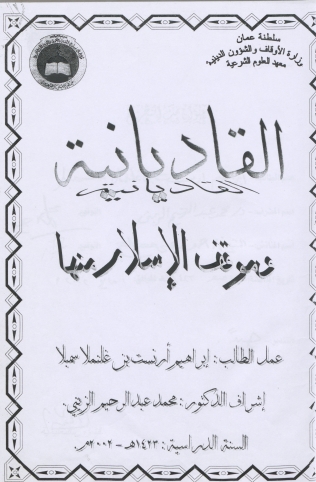 سلطنة عمان
وزارة الأوقاف والشؤون الدينية
معهد العلوم الشرعية
القاديانية
القاديانية
وموقف الإسلام منها
عمل الطالب: إبراهيم أرنست بن
إشراف الدكتور: محمد عبد الرحيم الزيني.
السنة الدراسية: ١٤٢٣هـ - ٢٠٠٢م.